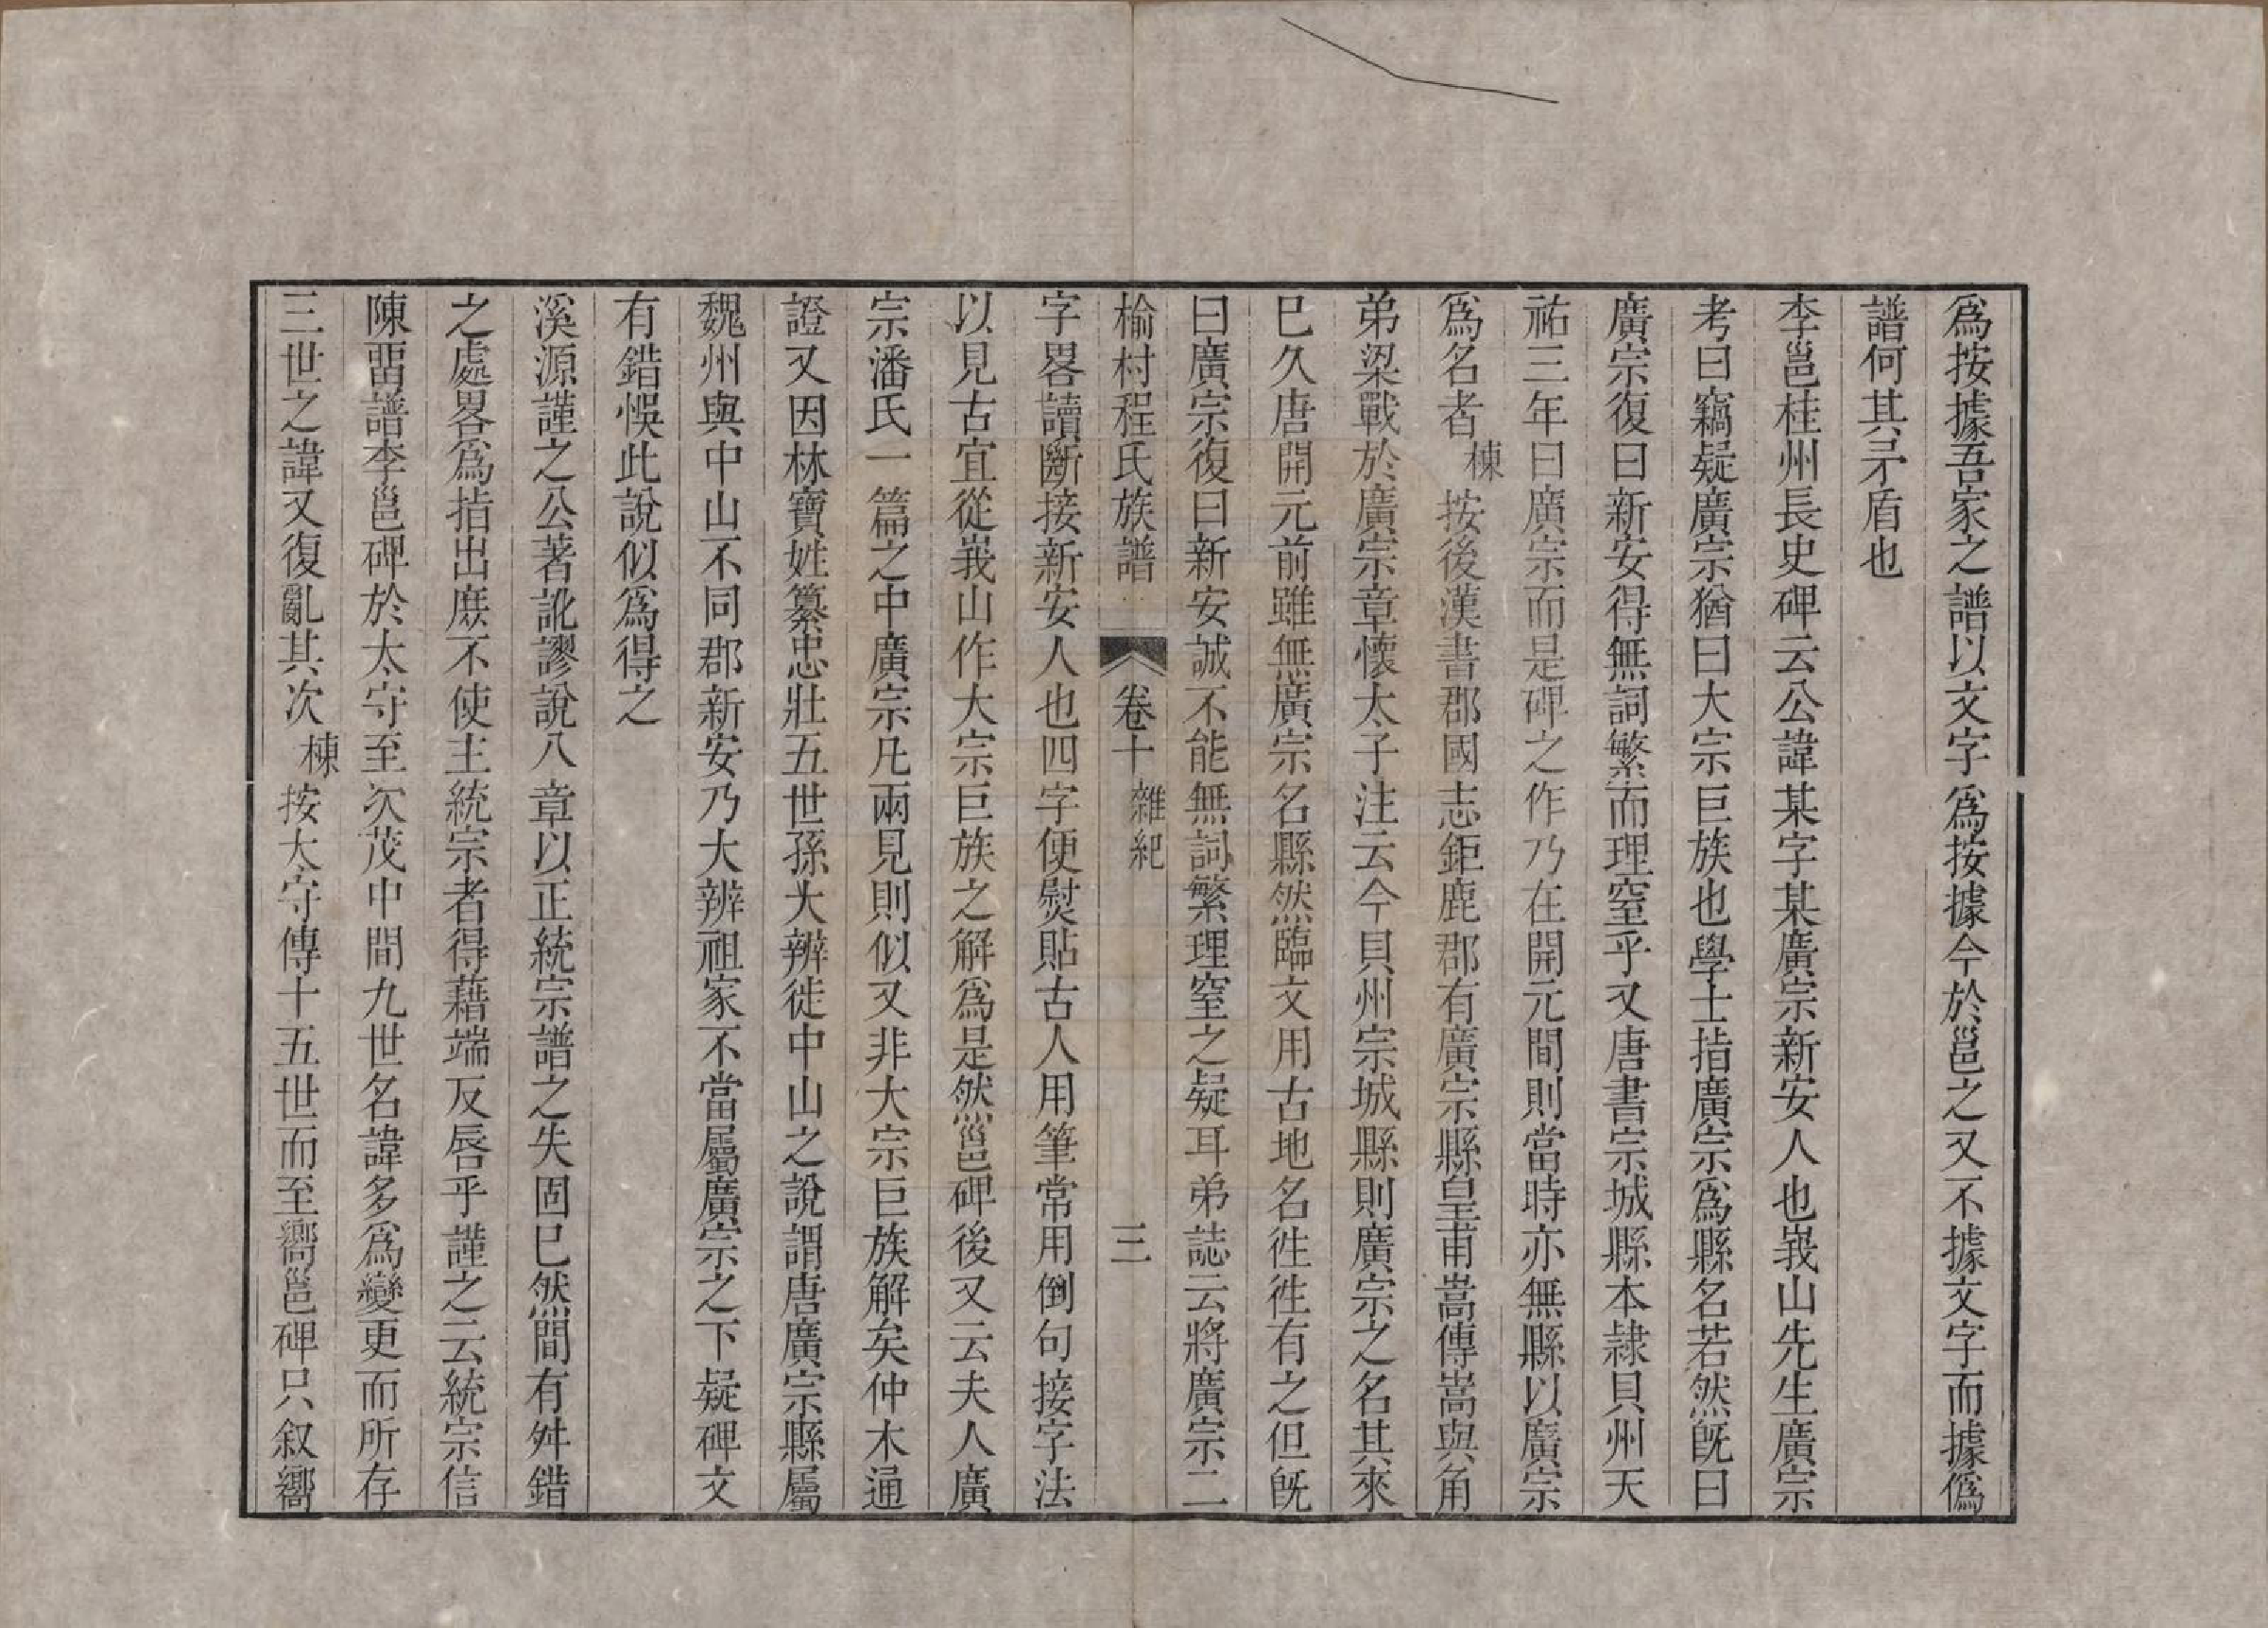 爲按據吾家之譜以文字爲按據今於邕之又不據文字而據僞
譜何其矛盾也
李邕桂州長史碑云公諱某字某廣宗新安人也峩山先生廣宗
考曰竊疑廣宗猶曰大宗巨族也學士指廣宗爲縣名若然旣曰
廣宗復曰新安得無詞繁而理窒乎又唐書宗城縣本隷貝州天
祐三年曰廣宗而是碑之作乃在開元間則當時亦無縣以廣宗
爲名者棟按後漢書郡國志鉅鹿郡有廣宗縣皇甫嵩傳嵩與角
弟梁戰於廣宗章懷太子注云今貝州宗城縣則廣宗之名其來
巳久唐開元前雖無廣宗名縣然臨文用古地名徃徃有之但旣
曰廣宗復曰新安誠不能無詞繁理窒之疑耳弟誌云將廣宗二
榆村程氏族譜 卷十 雜紀 三
字畧讀斷接新安人也四字便熨貼古人用筆常用倒句接字法
以見古宜從峩山作大宗巨族之解爲是然邕碑後又云夫人廣
宗潘氏一篇之中廣宗凡兩見則似又非大宗巨族解矣仲木通
證又因林寶姓纂忠壯五世孫大辨徙中山之說謂唐廣宗縣屬
魏州與中山不同郡新安乃大辨祖家不當屬廣宗之下疑碑文
有錯悞此說似爲得之
溪源謹之公著訛謬說八章以正統宗譜之失固巳然間有舛錯
之處畧爲指出庶不使主統宗者得藉端反唇乎謹之云統宗信
陳畱譜李邕碑於太守至次茂中間九世名諱多爲變更而所存
三世之諱又復亂其次棟按太守傳十五世而至嚮邕碑只叙嚮